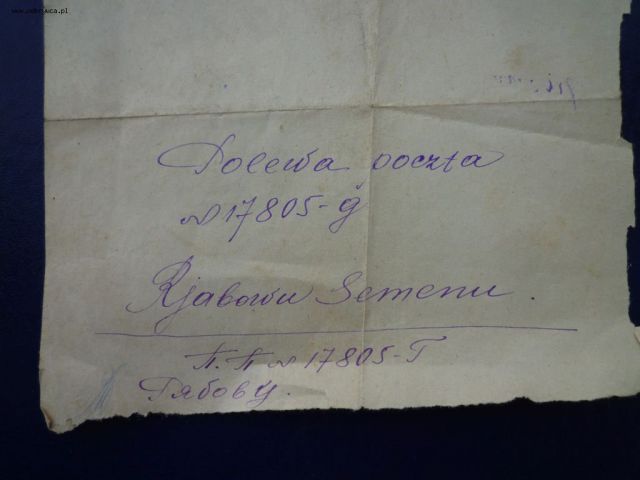 www.dobrowca.pl
Polewa poczta
№ 17805-g
Rjabowu Semenu.
П.П № 17805-Г
Рябову.